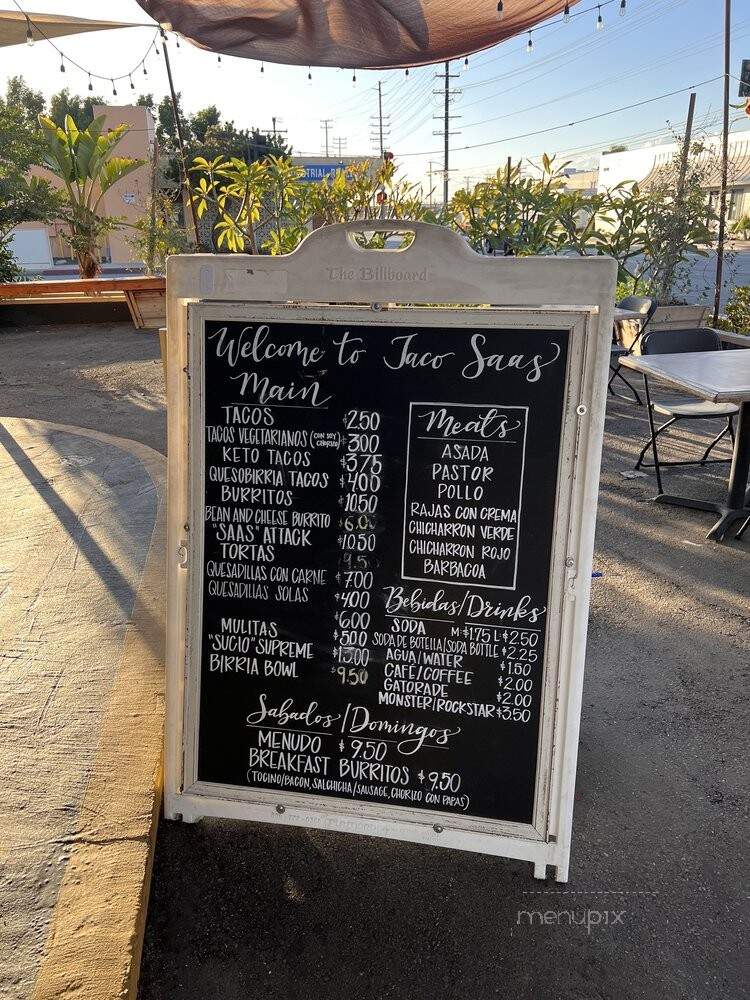 The Billboard
Welcome to Taco Saas
Main
TACOS $2.50
TACOS VEGETARIANOS (CON SOY CHORIZO) $3.00
KETO TACOS $3.75
QUESOBIRRIA TACOS $4.00
BURRITOS $10.50
BEAN AND CHEESE BURRITO $6.00
"SAAS" ATTACK $10.50
TORTAS 9.5
QUESADILLAS CON CARNE $7.00
QUESADILLAS SOLAS $4.00
$6.00
MULITAS $5.00
"SUCIO" SUPREME $13.00
BIRRIA BOWL $9.50
Meats
ASADA
PASTOR
POLLO
RAJAS CON CREMA
CHICHARRON VERDE
CHICHARRON ROJO
BARBACOA
Bebidas/Drinks
SODA M $1.75 L $2.50
SODA DE BOTELLA/SODA BOTTLE $2.25
AGUA/WATER $1.50
CAFÉ/COFFEE $2.00
GATORADE $2.00
MONSTER/ROCKSTAR $3.50
Sabados/Domingos
MENUDO $9.50
BREAKFAST BURRITOS $9.50
(TOCINO/BACON, SALCHICHA/SAUSAGE, CHORIZO CON PAPAS)
menupix